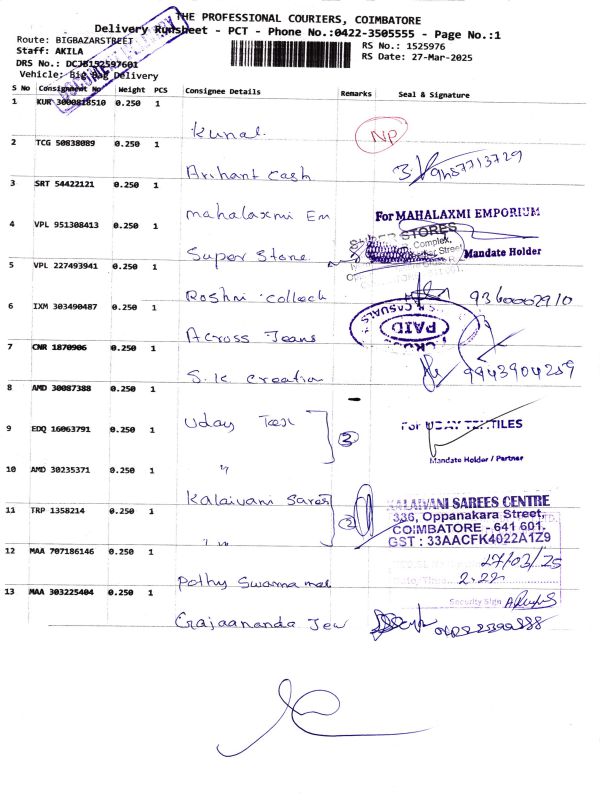 THE PROFESSIONAL COURIERS, COIMBATORE
Delivery Runsheet - PCT - Phone No.:0422-3505555 - Page No.:1
Route: BIGBAZARSTREET
RS No.: 1525976
Staff: AKILA
RS Date: 27-Mar-2025
DRS No.: DCJB152597601
Vehicle: Big Bag Delivery
S No Consignment No Weight PCS Consignee Details Remarks Seal & Signature
1 KUR 3000818510 0.250 1
Kunal
NP
2 TCG 50838089 0.250 1
Arihant Cash
3 SRT 54422121 0.250 1
Mahalaxmi Em
For MAHALAXMI EMPORIUM
Mandate Holder
4 VPL 951308413 0.250 1
Super Store
STORES
Complex,
Street
5 VPL 227493941 0.250 1
Roshni Collech
9360002910
6 IXM 303490487 0.250 1
Across Jeans
CASUALS
PAID
7 CNR 1870906 0.250 1
S.K. Creation
9943904259
8 AMD 30087388 0.250 1
Uday Tex
9 EDQ 16063791 0.250 1
"
2
For UDAY TEXTILES
Mandate Holder / Partner
10 AMD 30235371 0.250 1
Kalaivani Sares
11 TRP 1358214 0.250 1
"
2
KALAIVANI SAREES CENTRE
336, Oppanakara Street,
COIMBATORE - 641 601.
GST : 33AACFK4022A1Z9
12 MAA 707186146 0.250 1
Pothy Swarna mal
27/03/25
2.22
Security Sign
13 MAA 303225404 0.250 1
Gajaananda Jew